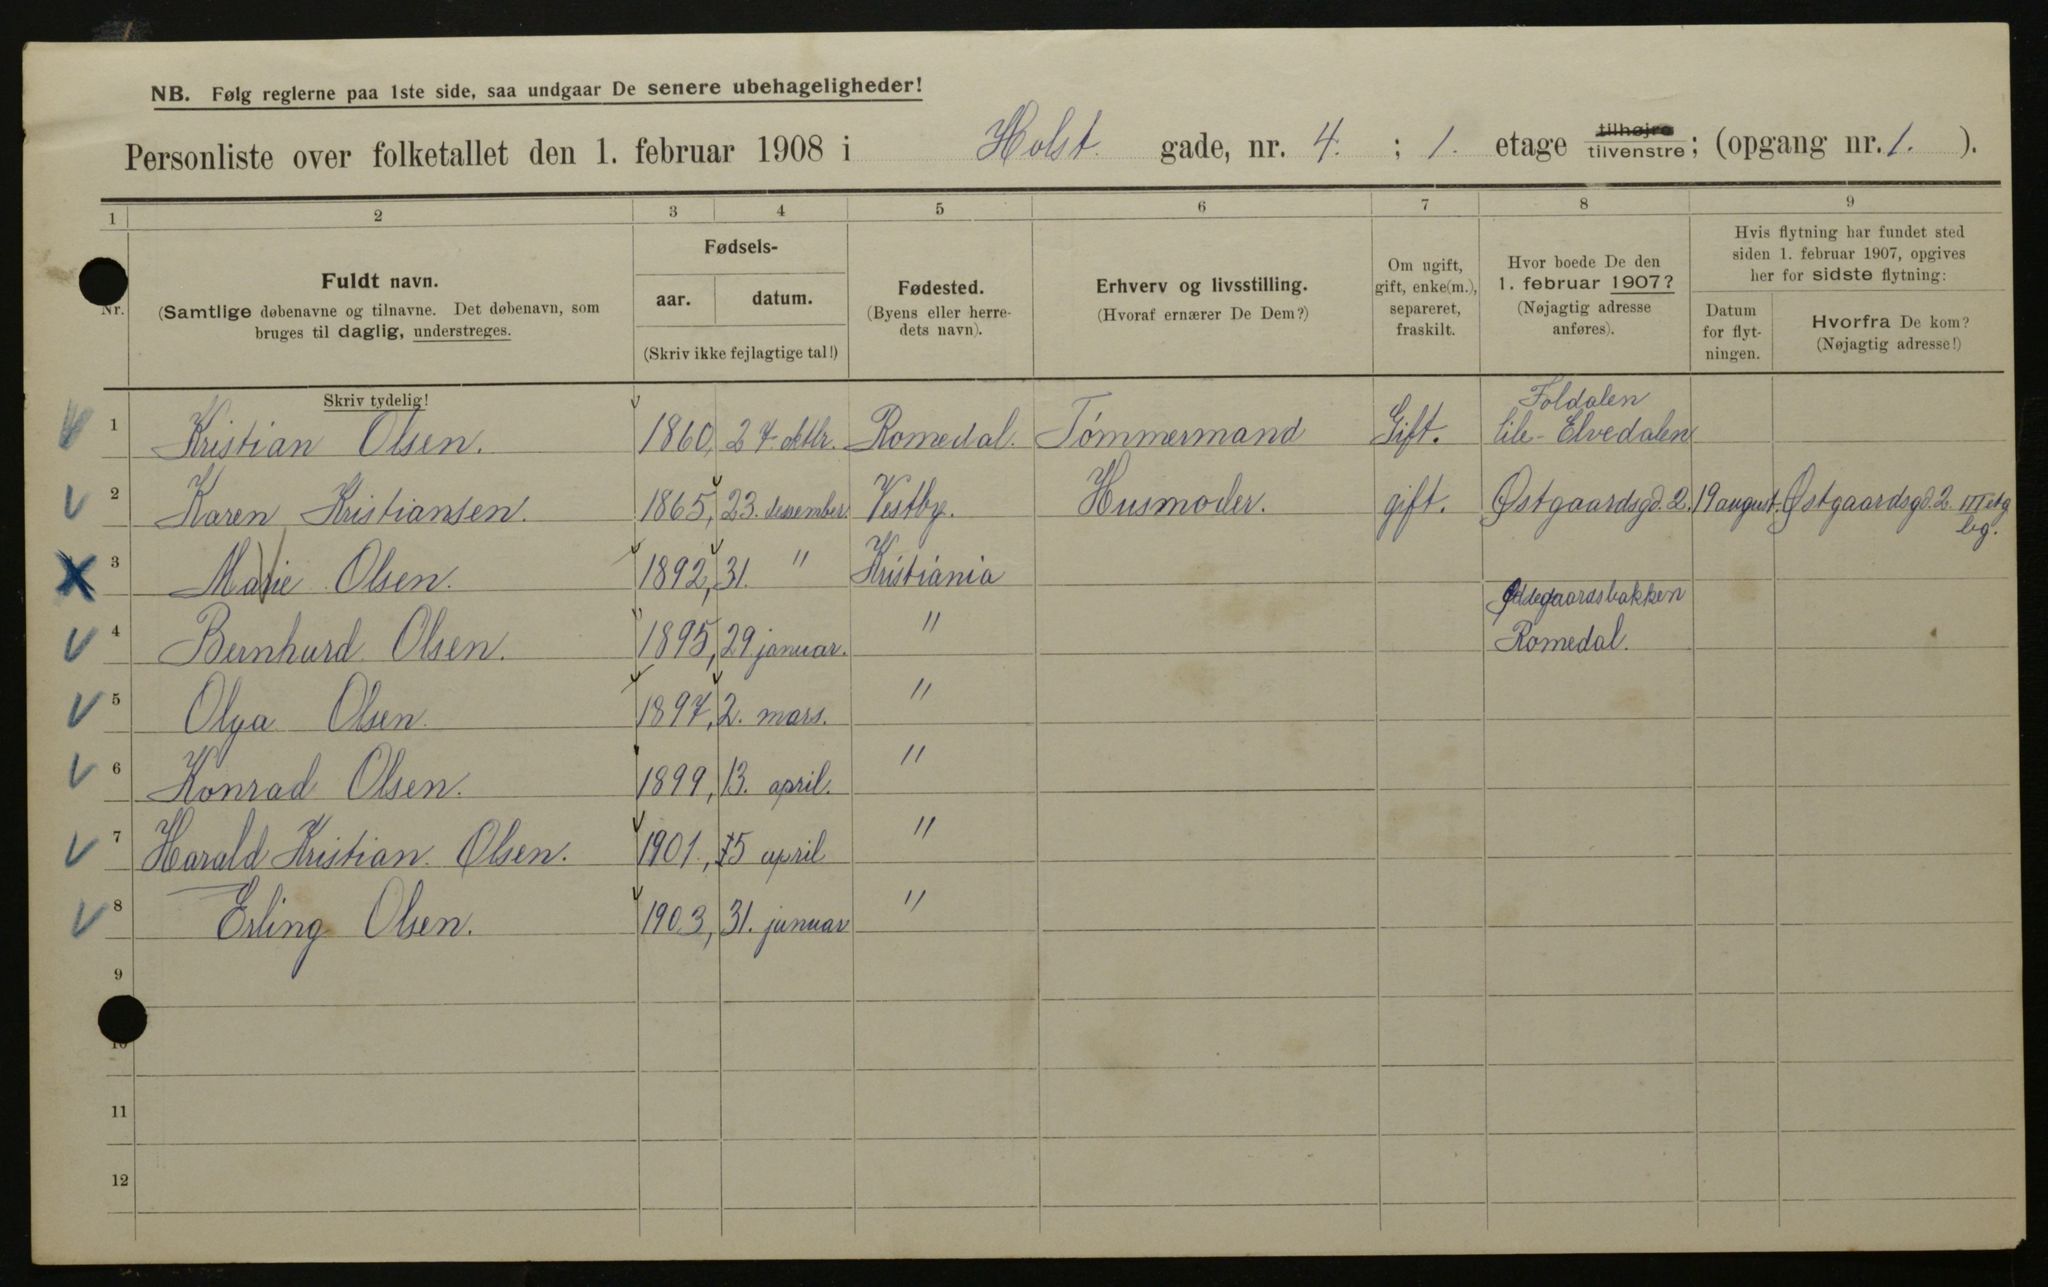 NB. Følg reglerne paa 1ste side, saa undgaar De senere ubehageligheder!
Personliste over folketallet den 1. februar 1908 i Holst. gade, nr. 4. ; 1. etage tilhøjre tilvenstre; (opgang nr. 1. ).
1 2 3 4 5 6 7 8 9
Nr.
Fuldt navn.
(Samtlige døbenavne og tilnavne. Det døbenavn, som
bruges til daglig, understreges.
Fødsels-
aar. datum.
(Skriv ikke fejlagtige tal!)
Fødested.
(Byens eller herre-
dets navn).
Erhverv og livsstilling.
(Hvoraf ernærer De Dem?)
Om ugift,
gift, enke(m.),
separeret,
fraskilt.
Hvor boede De den
1. februar 1907?
(Nøjagtig adresse
anføres).
Hvis flytning har fundet sted
siden 1. februar 1907, opgives
her for sidste flytning:
Datum
for flyt-
ningen.
Hvorfra De kom?
(Nøjagtig adresse!)
Skriv tydelig!
1 Kristian Olsen. 1860, 27 Romedal. Tømmermand Gift. Foldalen
lile-Elvedalen
2 Karen Kristiansen. 1865, 23. desember. Vestby. Husmoder. gift. Østgaardsgd. 2. 19 august. Østgaardsgd. 2. III etg
bg.
3 Marie Olsen. 1892, 31. " Kristiania
4 Bernhard Olsen. 1895, 29 januar. " Ødegaardsbakken
Romedal.
5 Olga Olsen. 1897, 2. mars. "
6 Konrad Olsen. 1899, 13. april. "
7 Harald Kristian. Olsen. 1901., 5 april "
8 Erling Olsen. 1903, 31. januar "
9
10
11
12